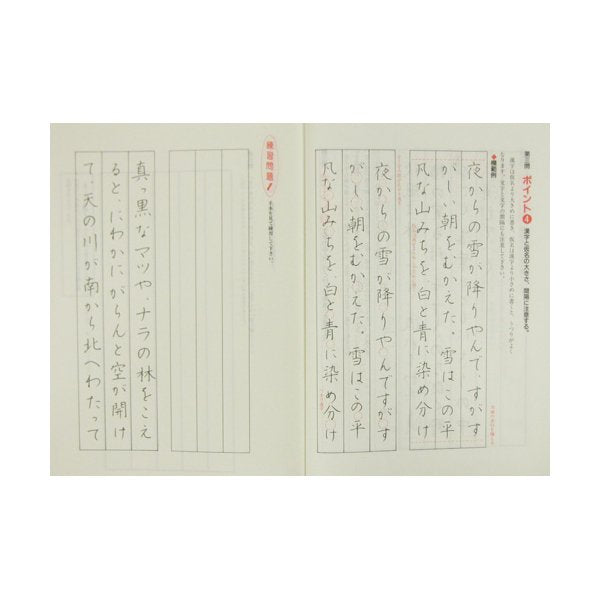 第三問
ポイント4 漢字と仮名の大きさ、間隔に注意する。
漢字は仮名より大きめに書き、仮名は漢字より小さめに書くこと、
文字と文字の間隔にも注意して下さい。
◆模範例
夜からの雪が降りやんで、すがす
がしい朝をむかえた。雪はこの平
凡な山みちを、白と青に染め分け
夜からの雪が降りやんですがす
がしい朝をむかえた。雪はこの平
凡な山みちを、白と青に染め分け
練習問題!
手本を見て練習して下さい。
真っ黒なマツや、ナラの林をこえ
ると、にわかにがらんと空が開け
て、天の川が南から北へわたって